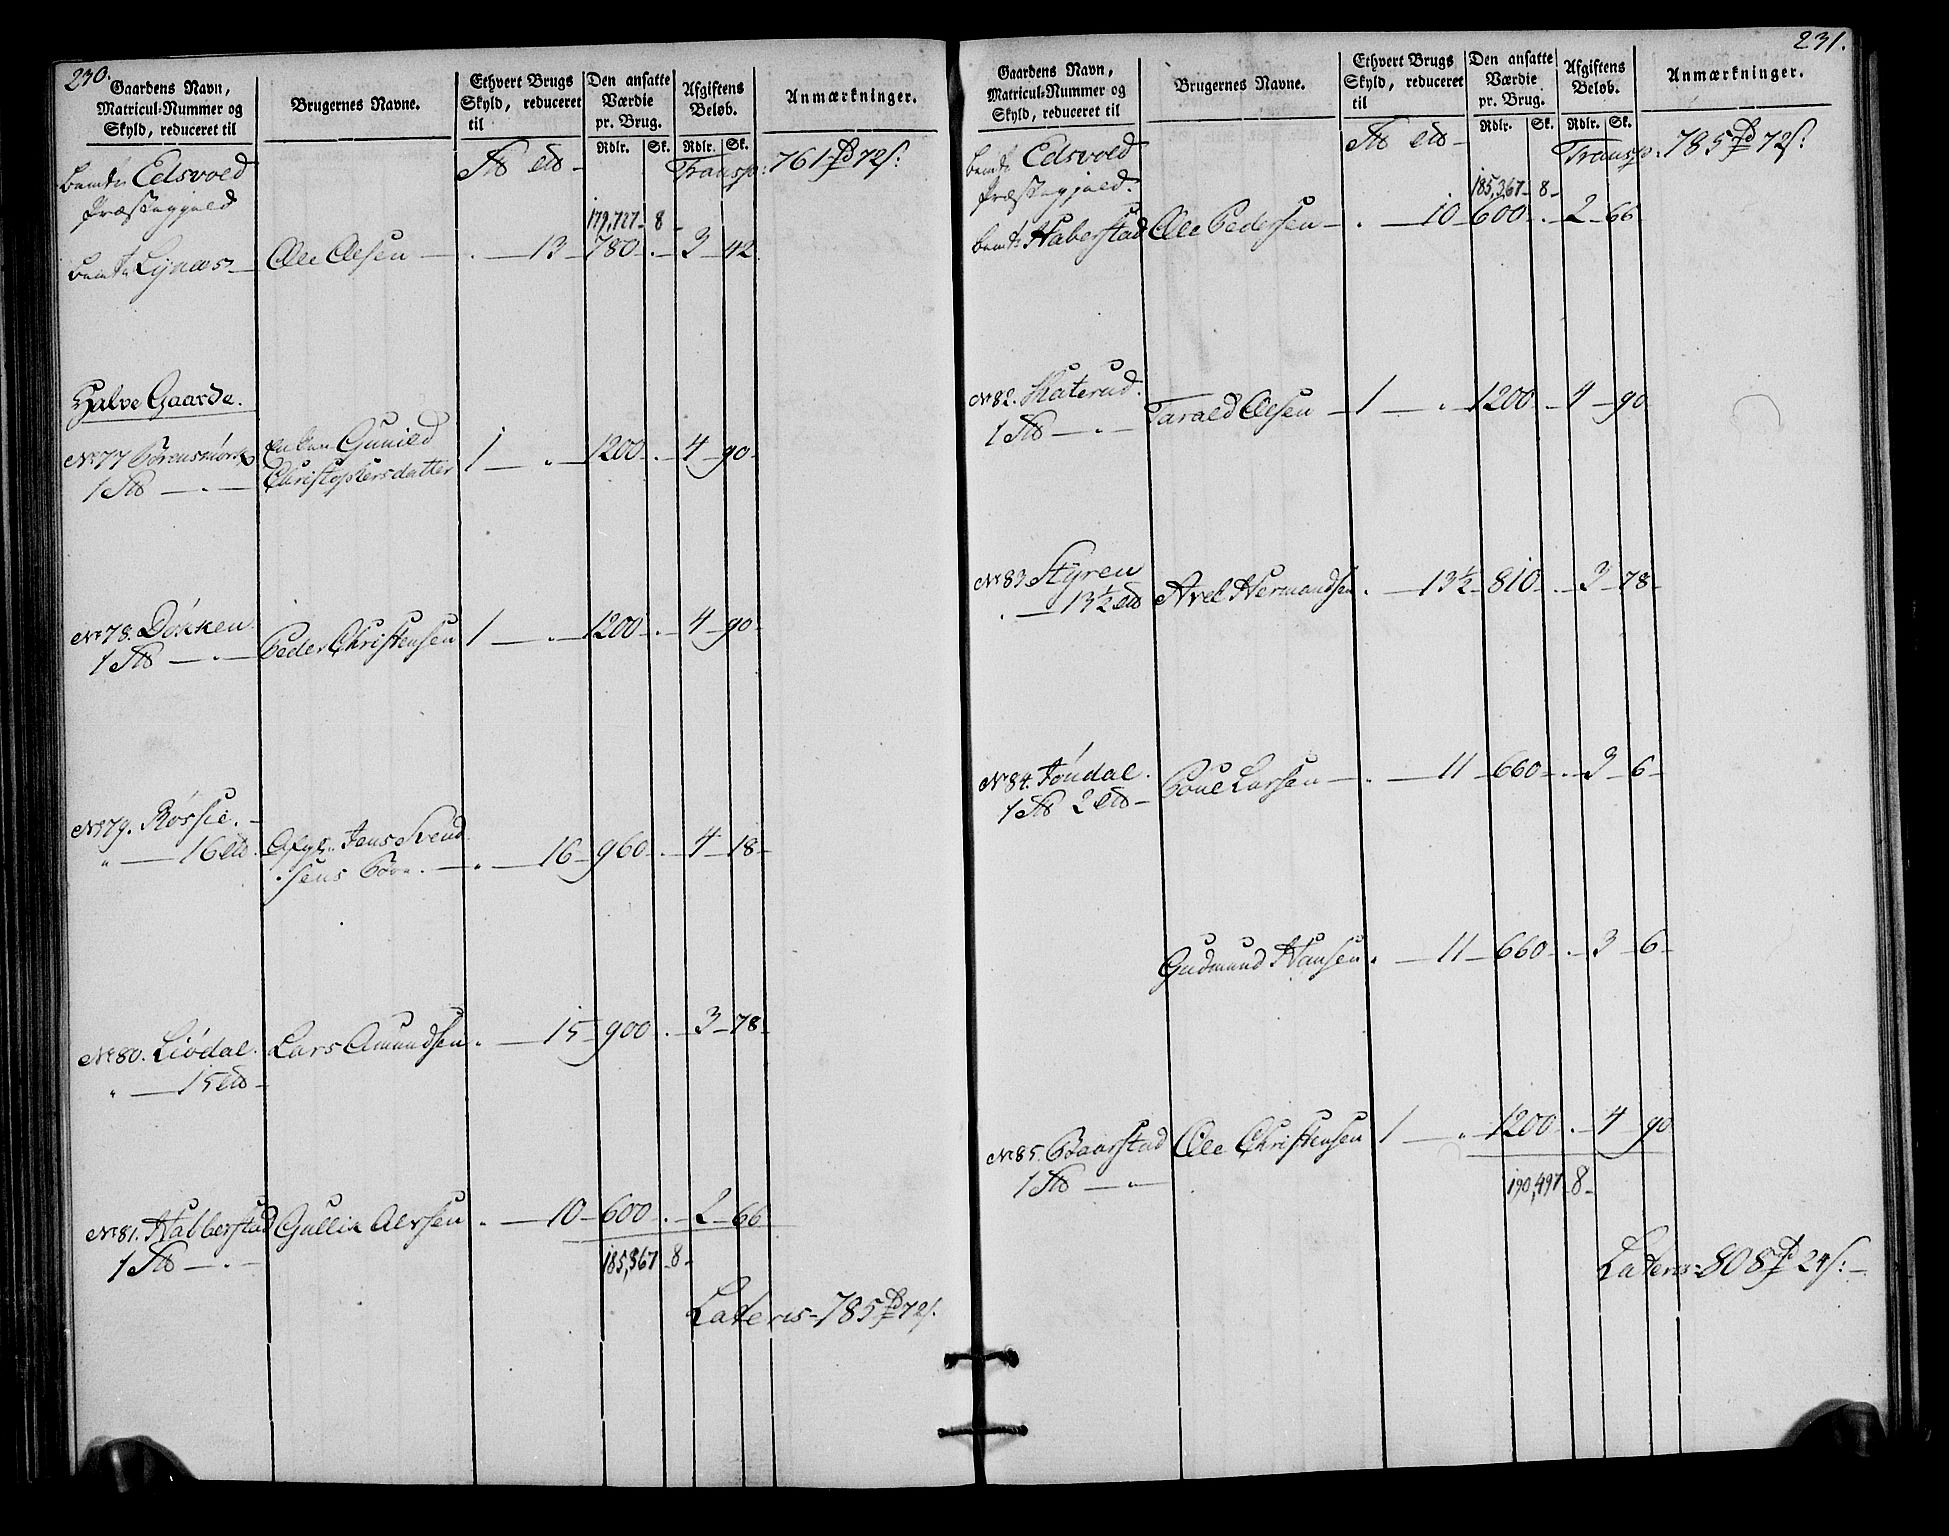 230.
Gaardens Navn,
Matricul-Nummer og
Skyld, reduceret til
Brugernes Navne.
Ethvert Brugs
Skyld, reduceret
til
Den ansatte
Værdie
pr. Brug.
Rdlr. Sk.
Afgiftens
Beløb.
Rdlr. Sk.
Anmærkninger.
Eidsvold
Præstegjæld
Transp: 761 72 s:
179,727 8
Lynæs Ole Olsen . 13 780 . 3 42
Halve Gaarde.
No 77 Gunild
1 Christophersdatter 1 . 1200 . 4 90
No 78. Døkken
1 Peder Christensen 1 . 1200 . 4 90
No 79. Røssie.
16 Jens Svend
sens 16 960 . 4 18
No 80. Liødal. Lars Amundsen . 15 900 . 3 78
15
No 81. Habberstad Gullik Alvsen . 10 600 . 2 66
1
185,367 8
Lateris 785 72 s.
231.
Gaardens Navn,
Matricul-Nummer og
Skyld, reduceret til
Brugernes Navne.
Ethvert Brugs
Skyld, reduceret
til
Den ansatte
Værdie
pr. Brug.
Rdlr. Sk.
Afgiftens
Beløb.
Rdlr. Sk.
Anmærkninger.
Eidsvold
Præstegjæld.
Transp. 785 72 s:
185,367 8
Haberstad Ole Pedersen . 10 600 . 2 66
No 82. Skaterud.
1 Tarald Olsen 1 . 1200 4 90
No 83 Styren
13½ Axel Hermandsen . 13½ 810 . 3 78
No 84. Jøndal.
1 2 Poul Larsen . 11 660 . 3 6
Gudmund Hansen . 11 660 . 3 6
No 85. Baarstad Ole Christensen 1 . 1200 . 4 90
1
190,497 8
Lateris 808 24 s: